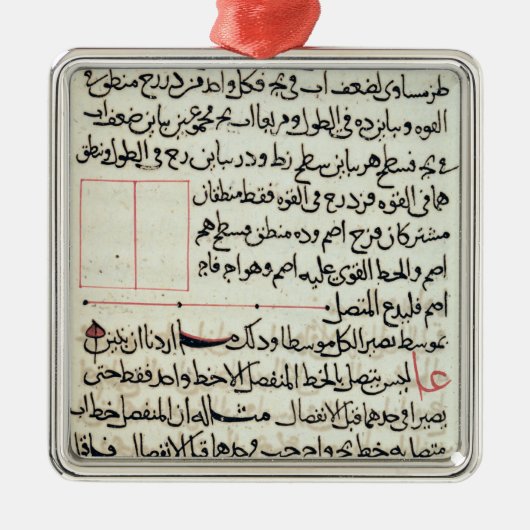 مساوى لضعف اب فى بج فكل واحد من رح منطق
القوه فى الطول ومربعا اب بج مجموعين يباين ضعف اب
فى بج فسطح هر يباين سطح زط و در يباين رح فى الطول ومنطق
هما فى القوه فزد رح فى القوه فقط منطقان
مشتركان فرح اصم وده منطق فسطح هح
اصم والخط القوى عليه اصم وهو اج فاج
اصم فليدع المنفصل
بموسط يصير الكل موسطا وذلك ما اردنا ان نبين
عا ليس يتصل بالخط المنفصل الا خط واحد فقط حتى
يصيرا فى حدهما قبل الانفصال مثاله ان المنفصل خط اب
متصا به خط بج واج جب وحدهما قبل الانفصال